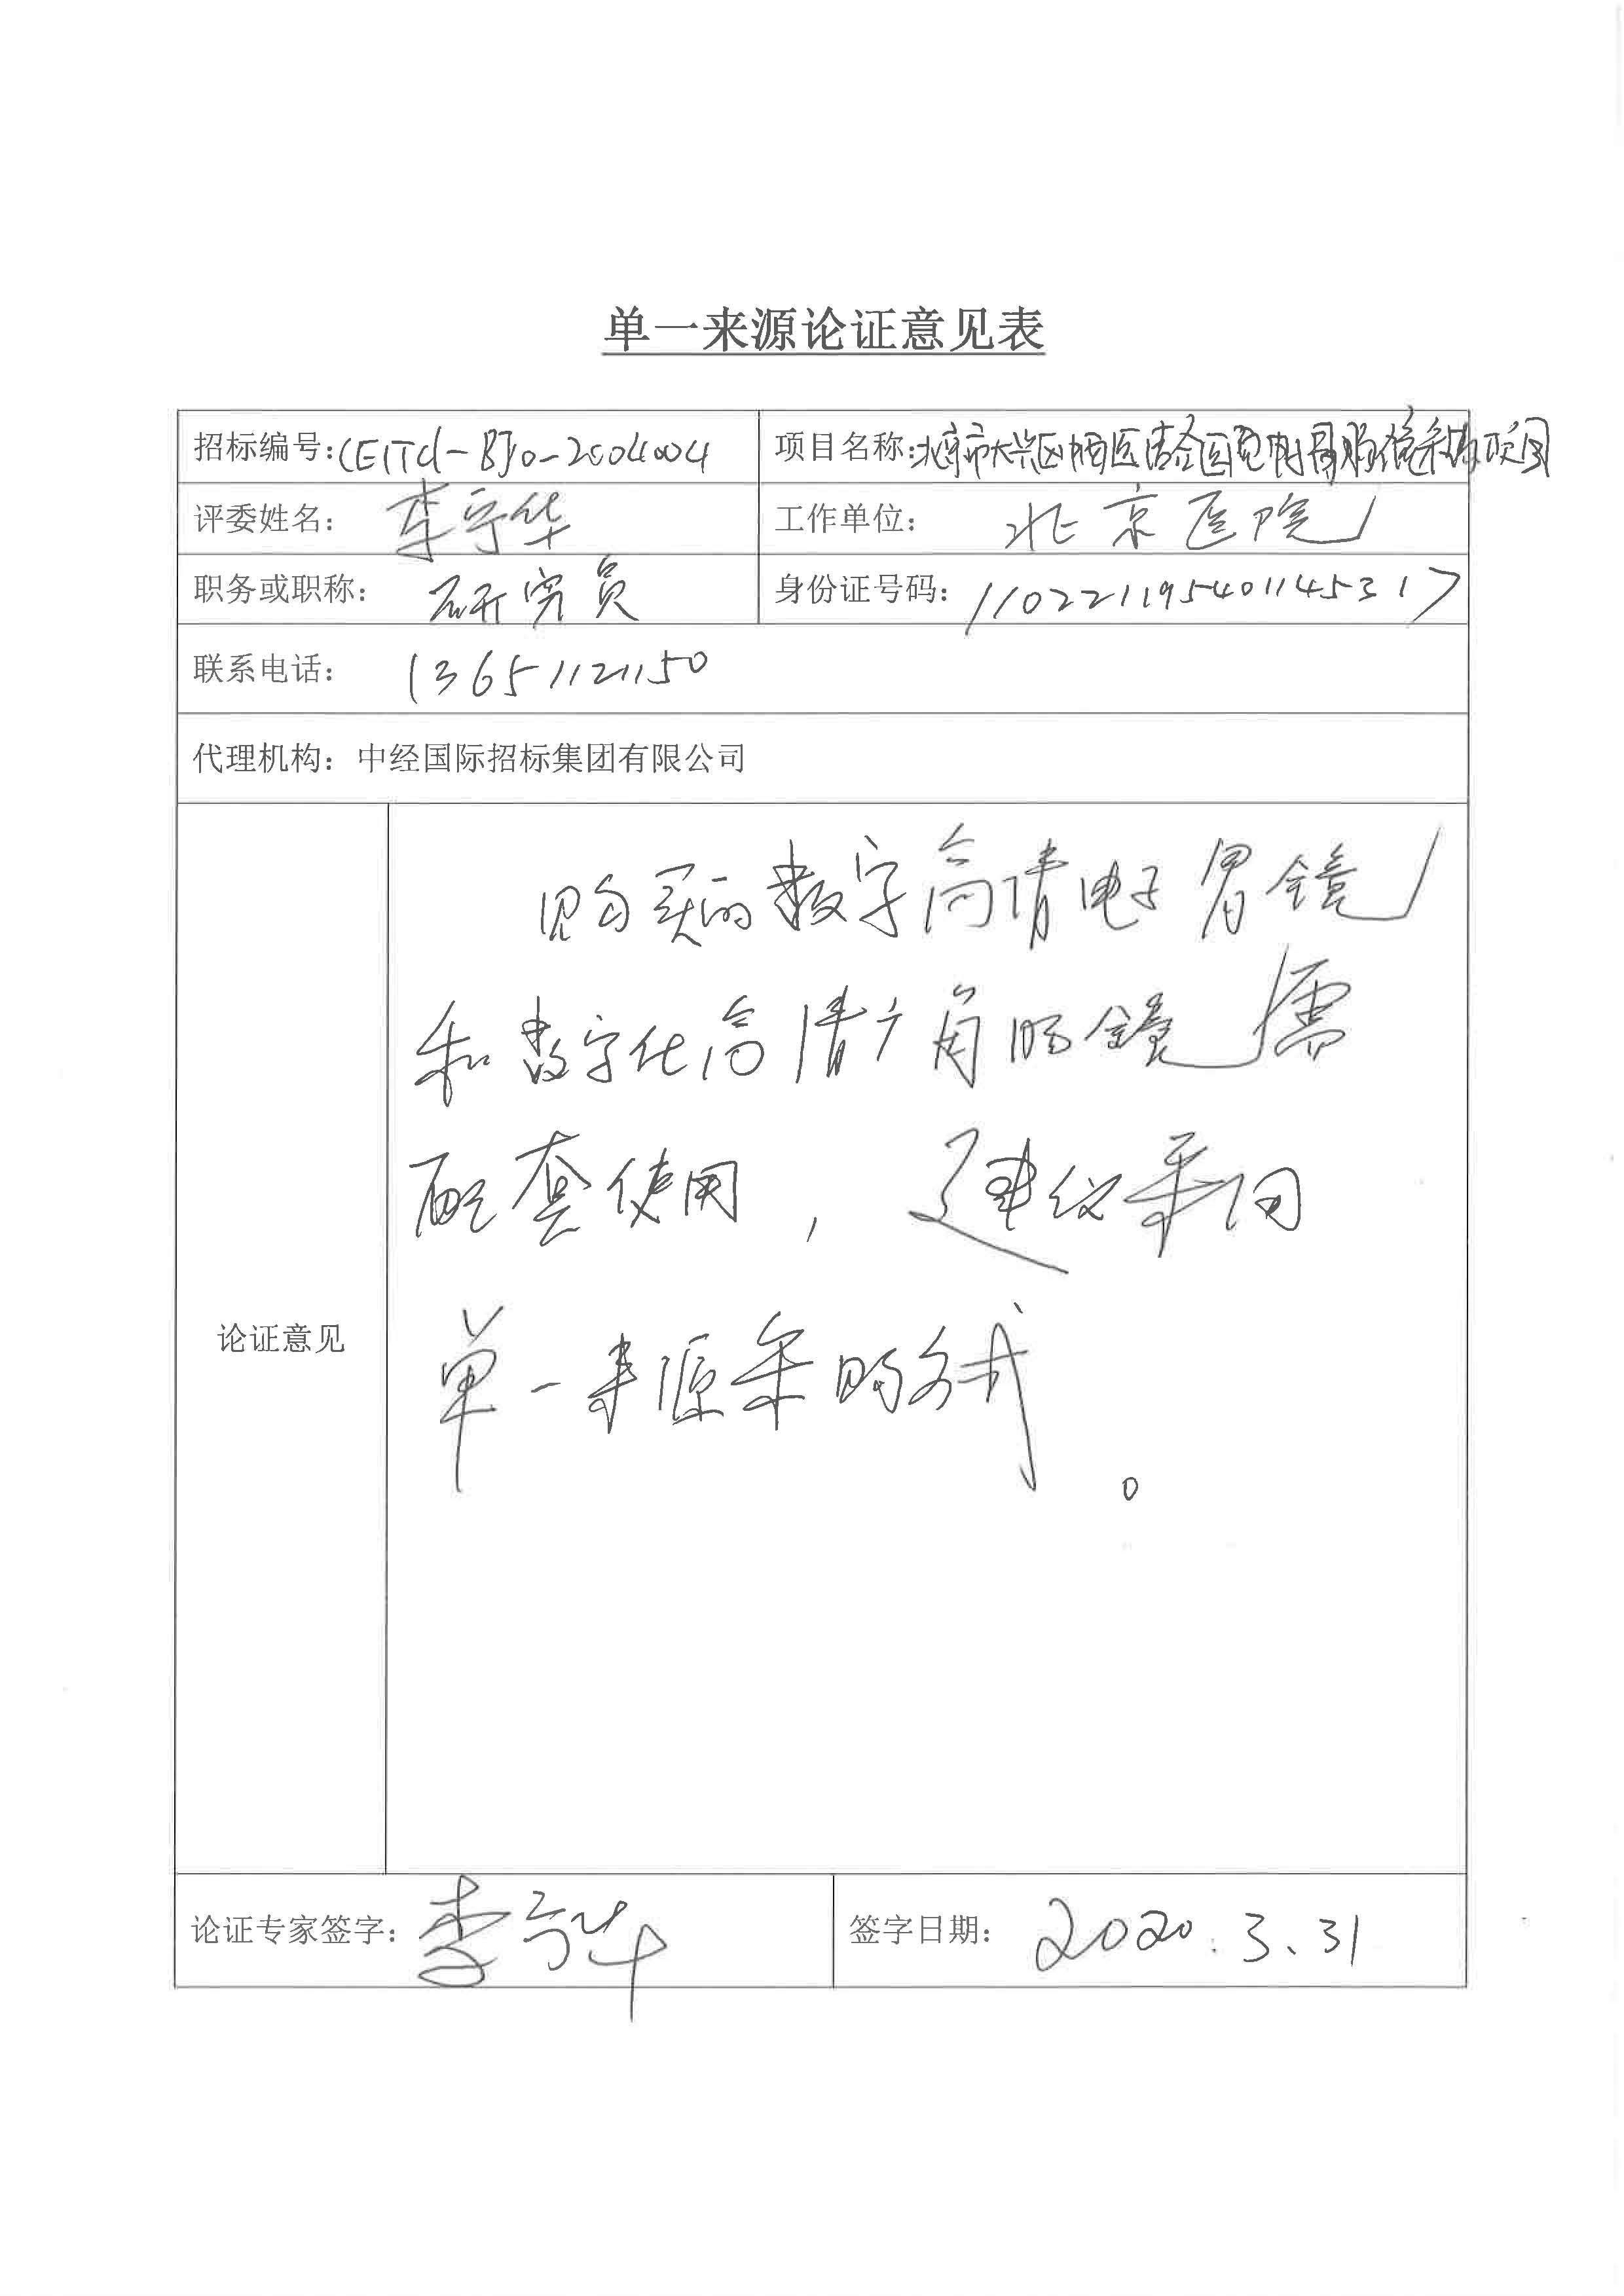 单一来源论证意见表
招标编号:CEITCl-BJ0-2004004 项目名称:北京市大兴区中西医结合医院电子胃肠镜采购项目
评委姓名: 李守华 工作单位: 北京医院
职务或职称: 研究员 身份证号码: 110221195401145317
联系电话: 13651121150
代理机构: 中经国际招标集团有限公司
论证意见
购买的数字高清电子胃镜
和数字化高清广角肠镜需
配套使用, 建议采用
单一来源采购方式。
论证专家签字: 李守华 签字日期: 2020.3、31